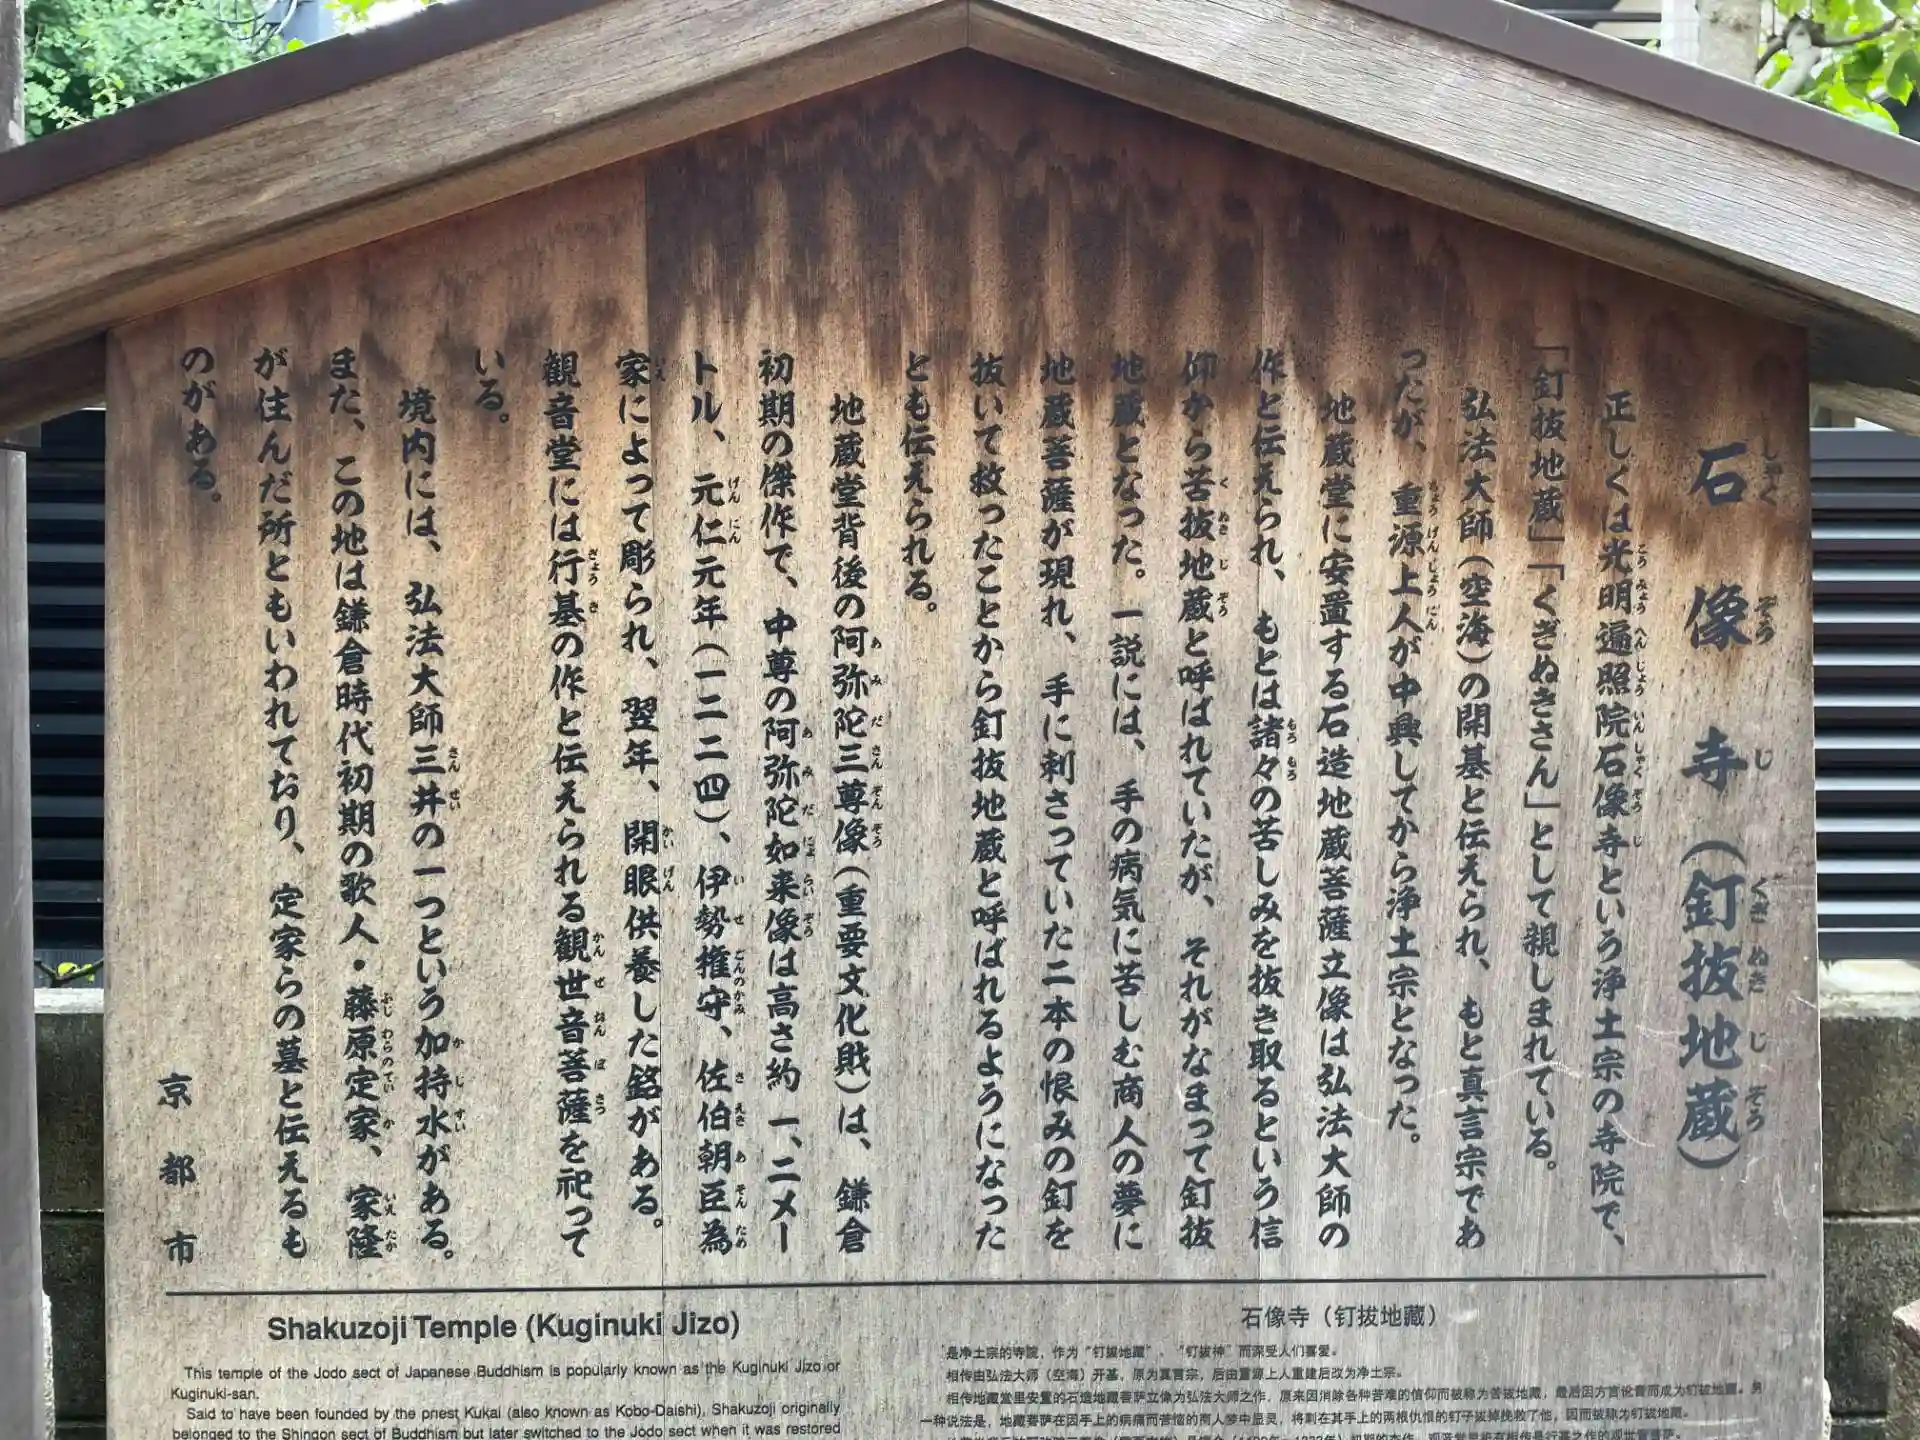 石像寺（釘抜地蔵）
正しくは光明遍照院石像寺という浄土宗の寺院で、
「釘抜地蔵」「くぎぬきさん」として親しまれている。
弘法大師（空海）の開基と伝えられ、もと真言宗であ
ったが、重源上人が中興してから浄土宗となった。
地蔵堂に安置する石造地蔵菩薩立像は弘法大師の
作と伝えられ、もとは諸々の苦しみを抜き取るという信
仰から苦抜地蔵と呼ばれていたが、それがなまって釘抜
地蔵となった。一説には、手の病気に苦しむ商人の夢に
地蔵菩薩が現れ、手に刺さっていた二本の恨みの釘を
抜いて救ったことから釘抜地蔵と呼ばれるようになった
とも伝えられる。
地蔵堂背後の阿弥陀三尊像（重要文化財）は、鎌倉
初期の傑作で、中尊の阿弥陀如来像は高さ約一、二メー
トル、元仁元年（一二二四）、伊勢権守、佐伯朝臣為
家によって彫られ、翌年、開眼供養した銘がある。
観音堂には行基の作と伝えられる観世音菩薩を祀って
いる。
境内には、弘法大師三井の一つという加持水がある。
また、この地は鎌倉時代初期の歌人・藤原定家、家隆
が住んだ所ともいわれており、定家らの墓と伝えるも
のがある。
京都市
Shakuzoji Temple (Kuginuki Jizo)
This temple of the Jodo sect of Japanese Buddhism is popularly known as the Kuginuki Jizo or
Kuginuki-san.
Said to have been founded by the priest Kukai (also known as Kobo-Daishi), Shakuzoji originally
belonged to the Shingon sect of Buddhism but later switched to the Jodo sect when it was restored
石像寺（钉拔地藏）
是净土宗的寺院，作为“钉拔地藏”、“钉拔神”而深受人们喜爱。
相传由弘法大师（空海）开基，原为真言宗，后由重源上人重建后改为净土宗。
相传地藏堂里安置的石造地藏菩萨立像为弘法大师之作，原来因消除各种苦难的信仰而被称为苦拔地藏，最后因方言讹音而成为钉拔地藏。另
一种说法是，地藏菩萨在因手上的病痛而苦恼的商人梦中显灵，将刺在其手上的两根仇恨的钉子拔掉挽救了他，因而被称为钉拔地藏。